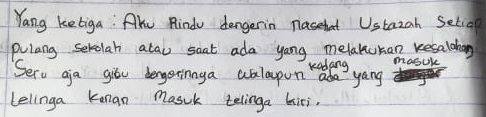 Yang ketiga : Aku Rindu dengerin nasehat Ustazah Setiap
pulang sekolah atau saat ada yang melakukan kesalahan
Seru aja gitu dengerinnya walaupun kadang ada yang masuk
telinga kanan masuk telinga kiri.